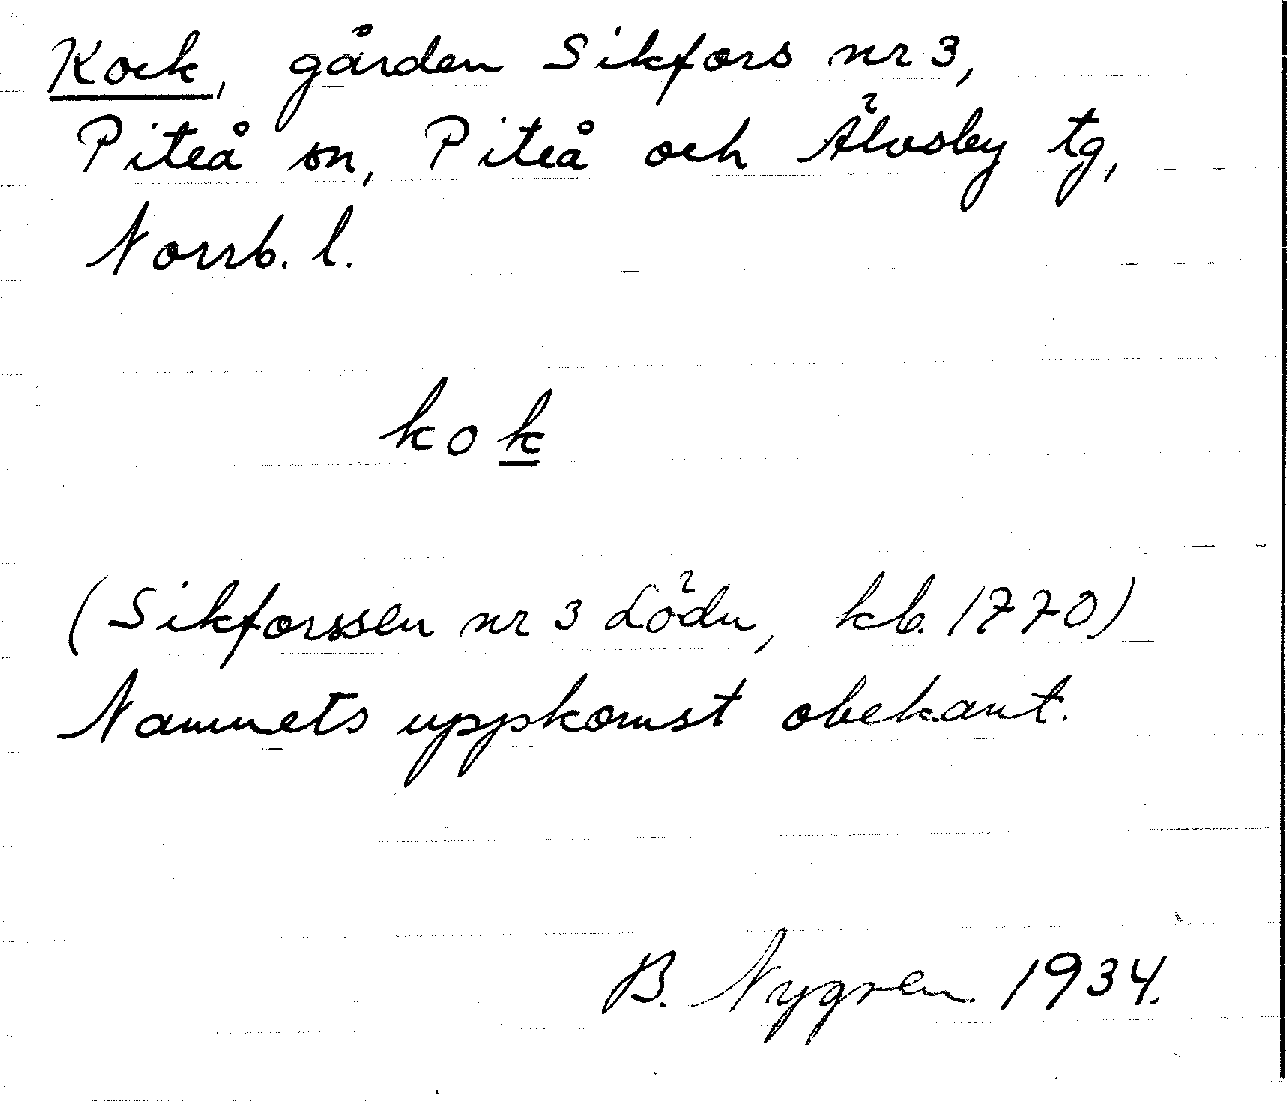 Kock, gården Sikfors nr 3,
Piteå sn, Piteå och Älvsby tg,
Norrb. l.
kok
(Sikforssen nr 3 Lödu, kb. 1770)
Namnets uppkomst obekant.
B. Nygren 1934.